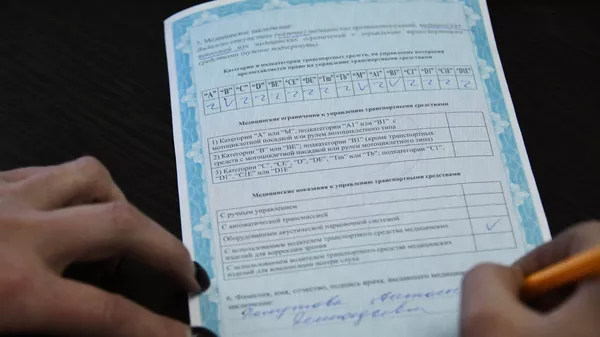 5. Медицинское заключение:
Категории и подкатегории транспортных средств, на управление которыми
предоставляется право на управление транспортными средствами
"A" "B" "C" "D" "BE" "CE" "DE" "Tm" "Tb" "M" "A1" "B1" "C1" "D1" "C1E" "D1E"
Медицинские ограничения к управлению транспортными средствами
1) Категории "A" или "M", подкатегории "A1" или "B1" с
мотоциклетной посадкой или рулем мотоциклетного типа
2) Категории "B" или "BE", подкатегории "B1" (кроме транспортных
средств с мотоциклетной посадкой или рулем мотоциклетного типа)
3) Категории "C", "CE", "D", "DE", "Tm" или "Tb", подкатегории "C1",
"D1", "C1E" или "D1E"
Медицинские показания к управлению транспортными средствами
С ручным управлением
С автоматической трансмиссией
Оборудованным акустической парковочной системой
С использованием водителем транспортного средства медицинских
изделий для коррекции зрения
С использованием водителем транспортного средства медицинских
изделий для компенсации потери слуха
6. Фамилия, имя, отчество, подпись врача, выдавшего медицинское
заключение